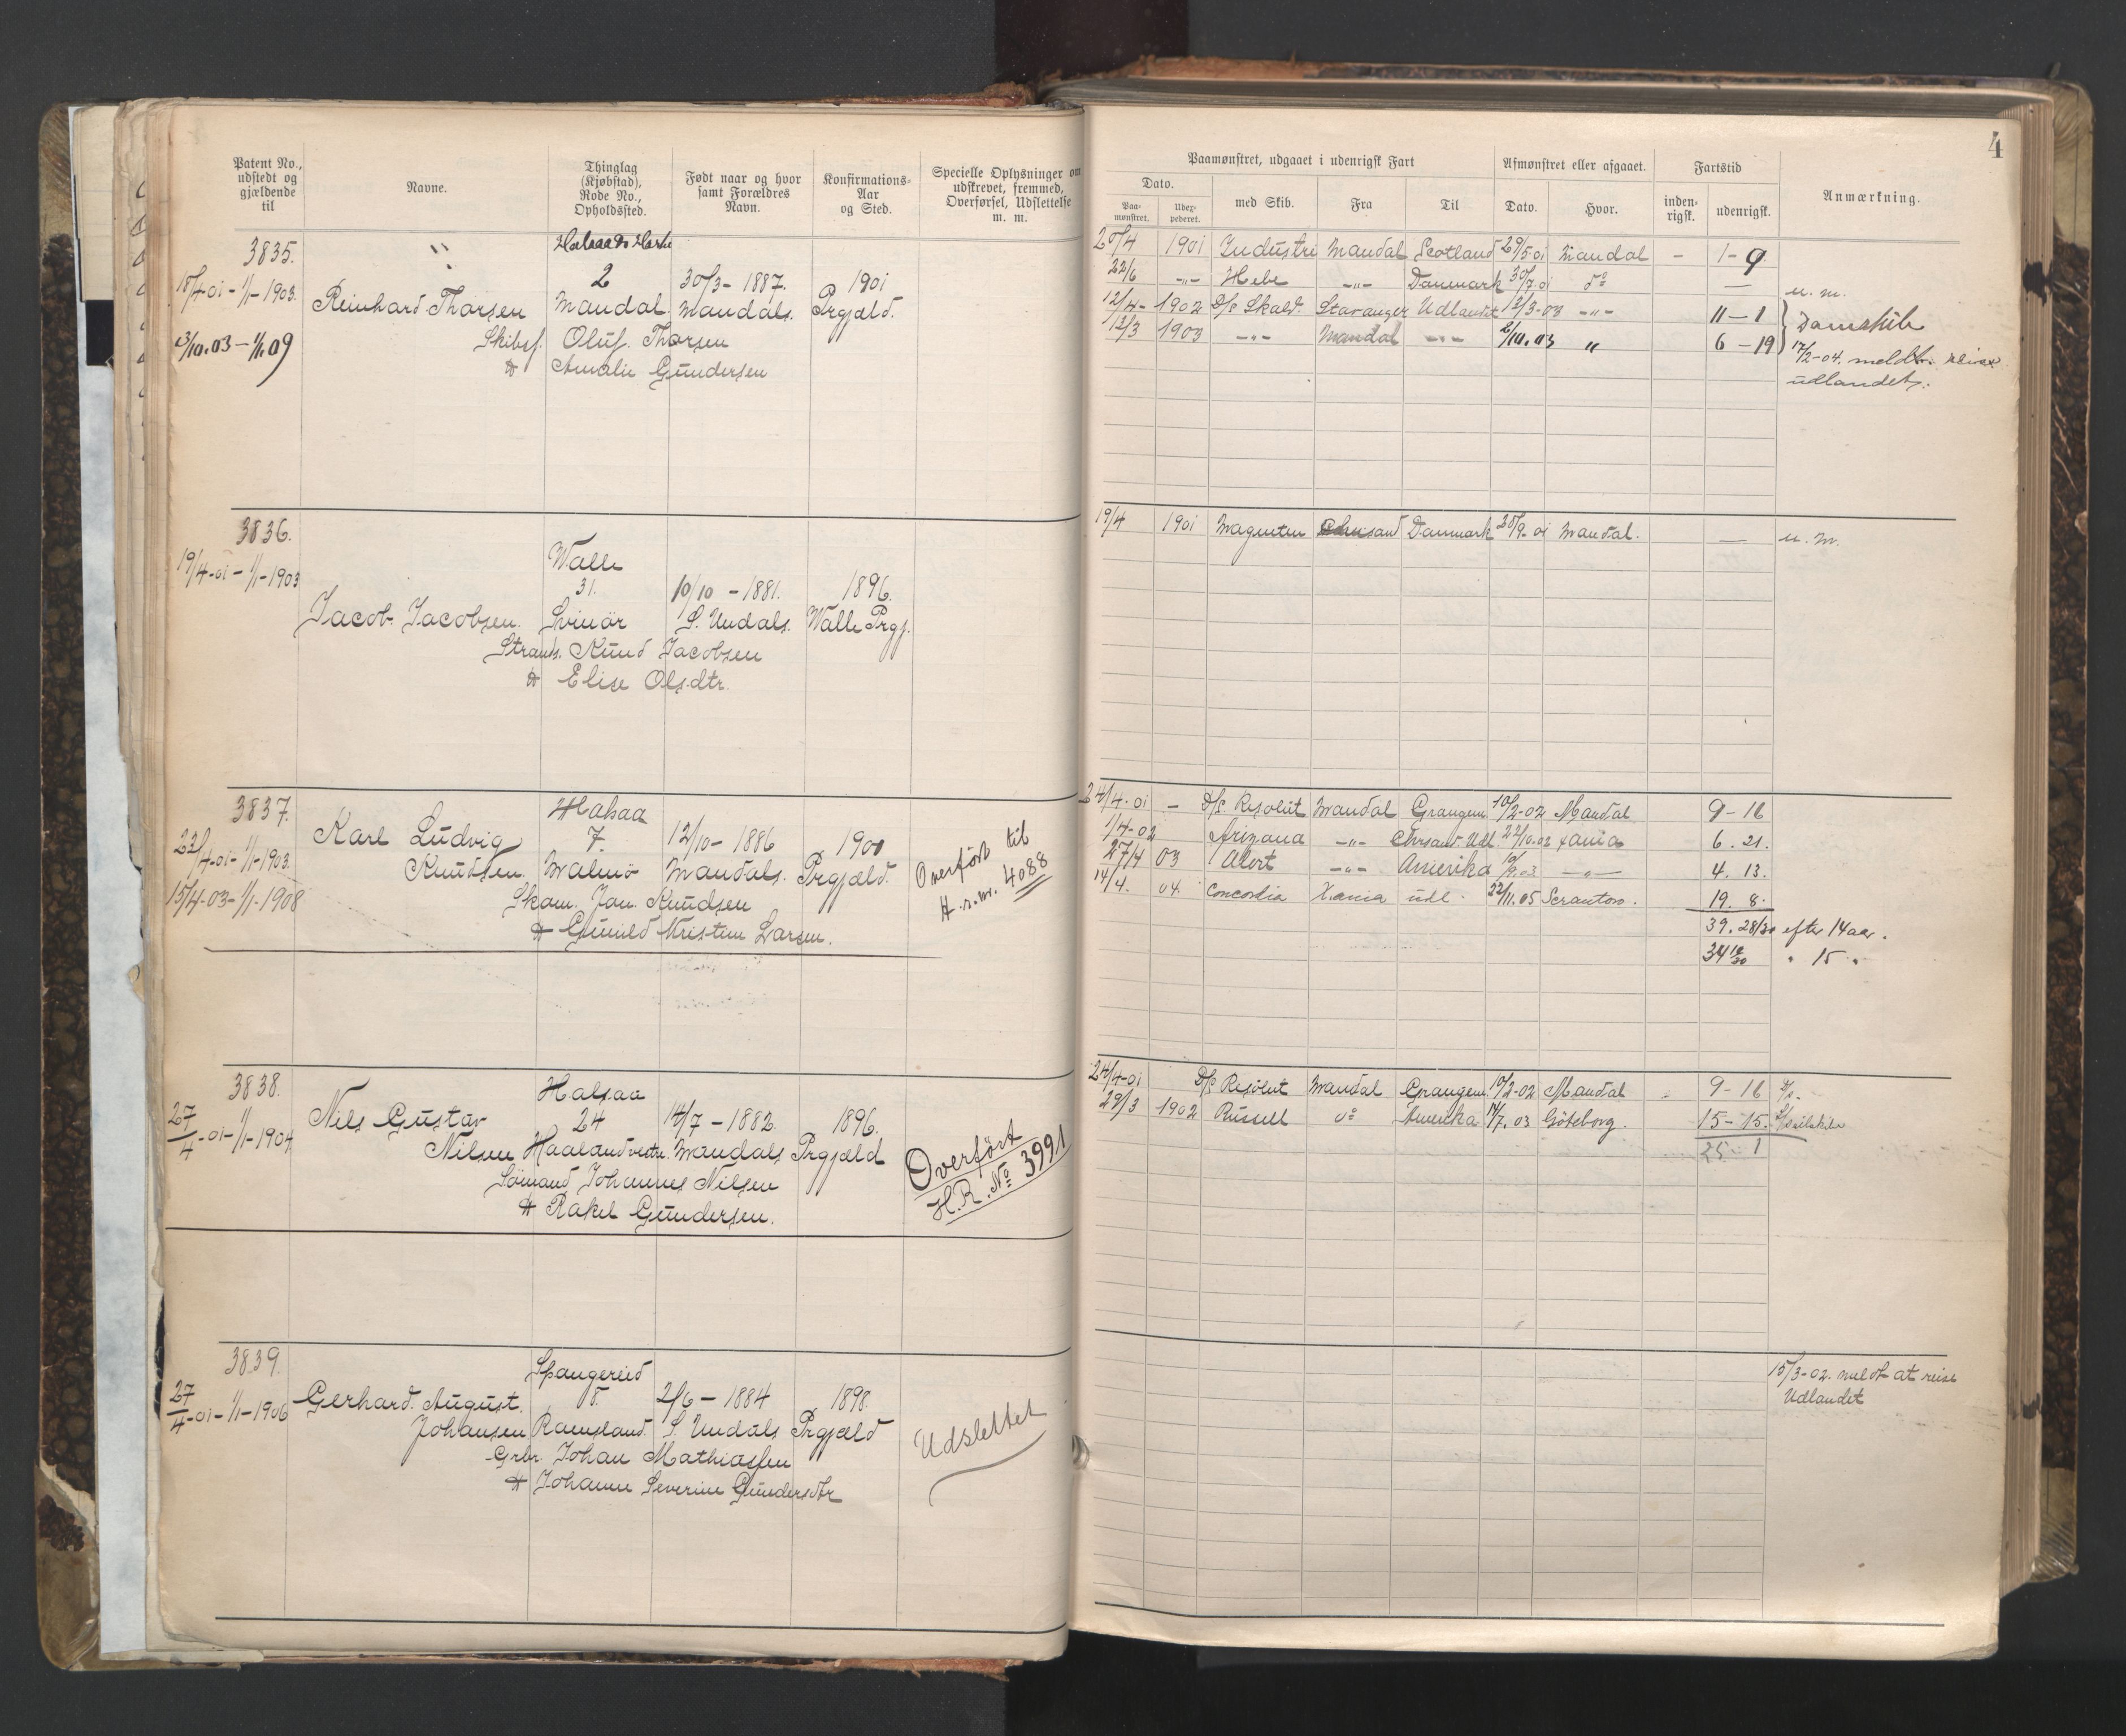 4
Patent No., udstedt og gjældende til
Navne.
Thinglag (Kjøbstad), Rode No., Opholdssted.
Født naar og hvor samt Forældres Navn.
Konfirmations-Aar og Sted.
Specielle Oplysninger om udskrevet, fremmed, Overførsel, Udslettelse m. m.
Paamønstret, udgaaet i udenrigsk Fart
Afmønstret eller afgaaet.
Fartstid
Anmærkning.
Dato.
Paa-mønstret.
Udex-pederet.
med Skib.
Fra
Til
Dato.
Hvor.
inden-rigsk.
udenrigsk.
3835.
18/4-01-1/1-1903.
2 30/3-1887. 1901
Reinhard Thorsen Mandal. Mandals. Prgjæld.
3/10.03-1/1.09
Skibsf. Oluf. Thorsen
& Amalie Gundersen
20/4 1901 Industri Mandal Scotland 29/5.01 Mandal - 1-9
22/6 -"- Hebe -"- Danmark 30/7.01 do — u. m.
12/4- 1902 D/s Skald. Stavanger Udlandet 12/3-03 -"- 11-1
12/3 1903 -"- Mandal -"- 2/10.03 " 6-19
Damskib
17/2-04. meldt. reise
udlandet.
3836.
19/4-01-1/1-1903
Walle
31. 10/10-1881. 1896.
Jacob Jacobsen. Svinör S. Undals. Walle Prgj.
Strands. Knud Jacobsen
& Elise Olsdtr.
19/4 1901 Magneten Chrisand Danmark 20/9-01 Mandal. — u. m.
3837.
23/4-01-1/1-1903.
15/4-03-1/1-1908
Halsaa
Karl Ludvig 7. 12/10-1886 1900
Knudsen. Malmö Mandals. Prgjæld.
Skom. Jan. Knudsen
& Gunild Kristine Larsen.
Overført til
H.r.nr. 4088
24/4-01 - D/s Resolut Mandal Grangem 10/2-02 Mandal 9-16
1/4-02 Arizona -"- Chrsand. Udl. 22/10.02 Xania 6.21.
27/4 03 Alert -"- Amerika 10/9.03 -"- 4.13.
14/4. 04 Concordia Xania udl. 22/11.05 Scranton. 19.8.
39.28/30 efter 14 aar.
34 12/30 " 15 "
3838.
27/4-01-1/1-1904
Halsaa
Nils Gustav 24 14/7-1882. 1896.
Nilsen Haaland vestre. Mandals Prgjæld
Sömand Johannes Nilsen
& Rakel Gundersen.
Overført
H.R. No 3991
24/4-01 D/s Resolut Mandal Grangem. 10/2-02 Mandal 9-16
29/3 1902 Russell do Amerika 14/7.03 Göteborg. 15-15. Seilskibe
25-1
3839.
27/4-01-1/1-1906
Spangereid
Gerhard August. 8. 2/6-1884 1898.
Johansen Ramsland. S. Undals Prgjæld
Grbr. Johan Mathiassen
& Johanne Severine Gundersdtr
Udslettet
15/3-02. meldt at reise
Udlandet